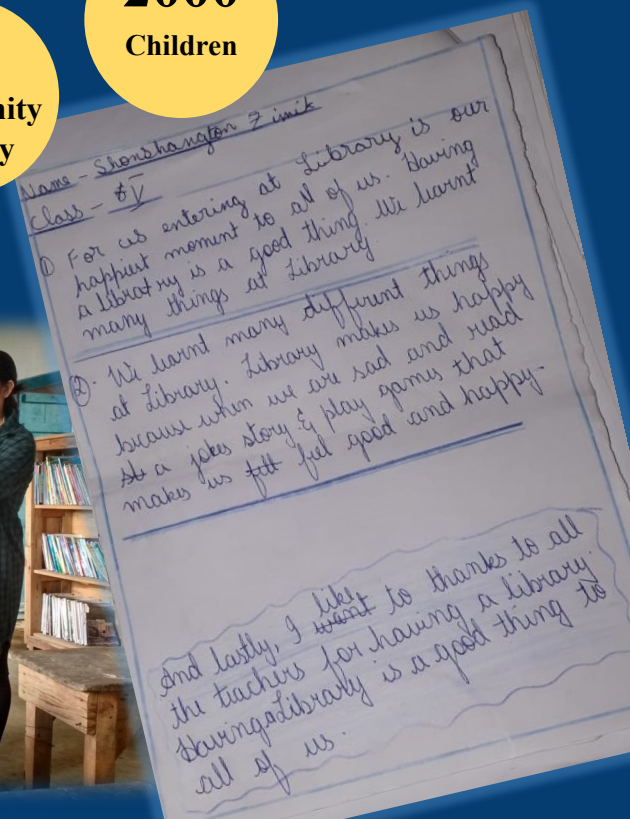 2000
Children
nity
y
Name - Shonshangton Zimik
Class - V
① For us entering at Library is our
happiest moment to all of us. Having
a library is a good thing. We learnt
many things at Library.
②. We learnt many different things
at Library. Library makes us happy
because when we are sad and read
a jokes story & play games that
makes us feel good and happy.
And lastly, I like to thanks to all
the teachers for having a library.
Having a Library is a good thing to
all of us.